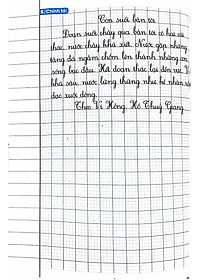 B. Chính tả:
Con suối bản tôi
Đoạn suối chảy qua bản tôi có hai cái
thác. Nước chảy khá xiết. Nước gặp những
tảng đá ngầm chồm lên thành những con
sóng bạc đầu. Hết đoạn thác lại đến vực. Vực
khá sâu, nước lững thững như kẻ nhàn rỗi
dạo xuôi dòng.
Theo Vi Hồng, Hồ Thuỷ Giang